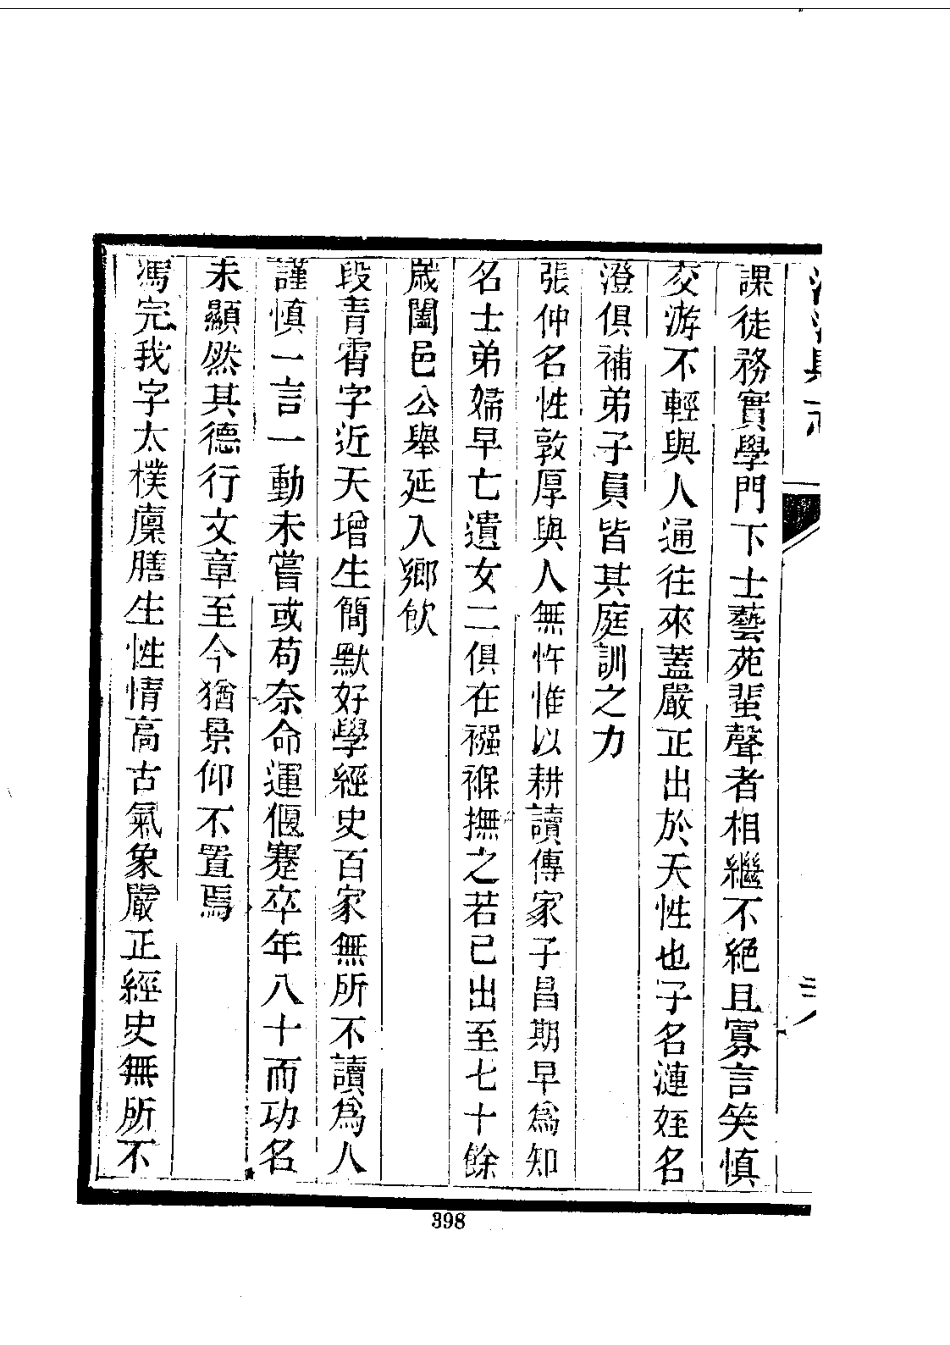 課徒務實學門下士藝苑蜚聲者相繼不絕且寡言笑慎
交游不輕與人通往來蓋嚴正出於天性也子名漣姪名
澄俱補弟子員皆其庭訓之力
張仲名性敦厚與人無忤惟以耕讀傳家子昌期早為知
名士弟婦早亡遺女二俱在襁褓撫之若已出至七十餘
歲闔邑公舉延入鄉飲
段青霄字近天增生簡默好學經史百家無所不讀為人
謹慎一言一動未嘗或苟奈命運偃蹇卒年八十而功名
未顯然其德行文章至今猶景仰不置焉
馮完我字太樸廩膳生性情高古氣象嚴正經史無所不
398